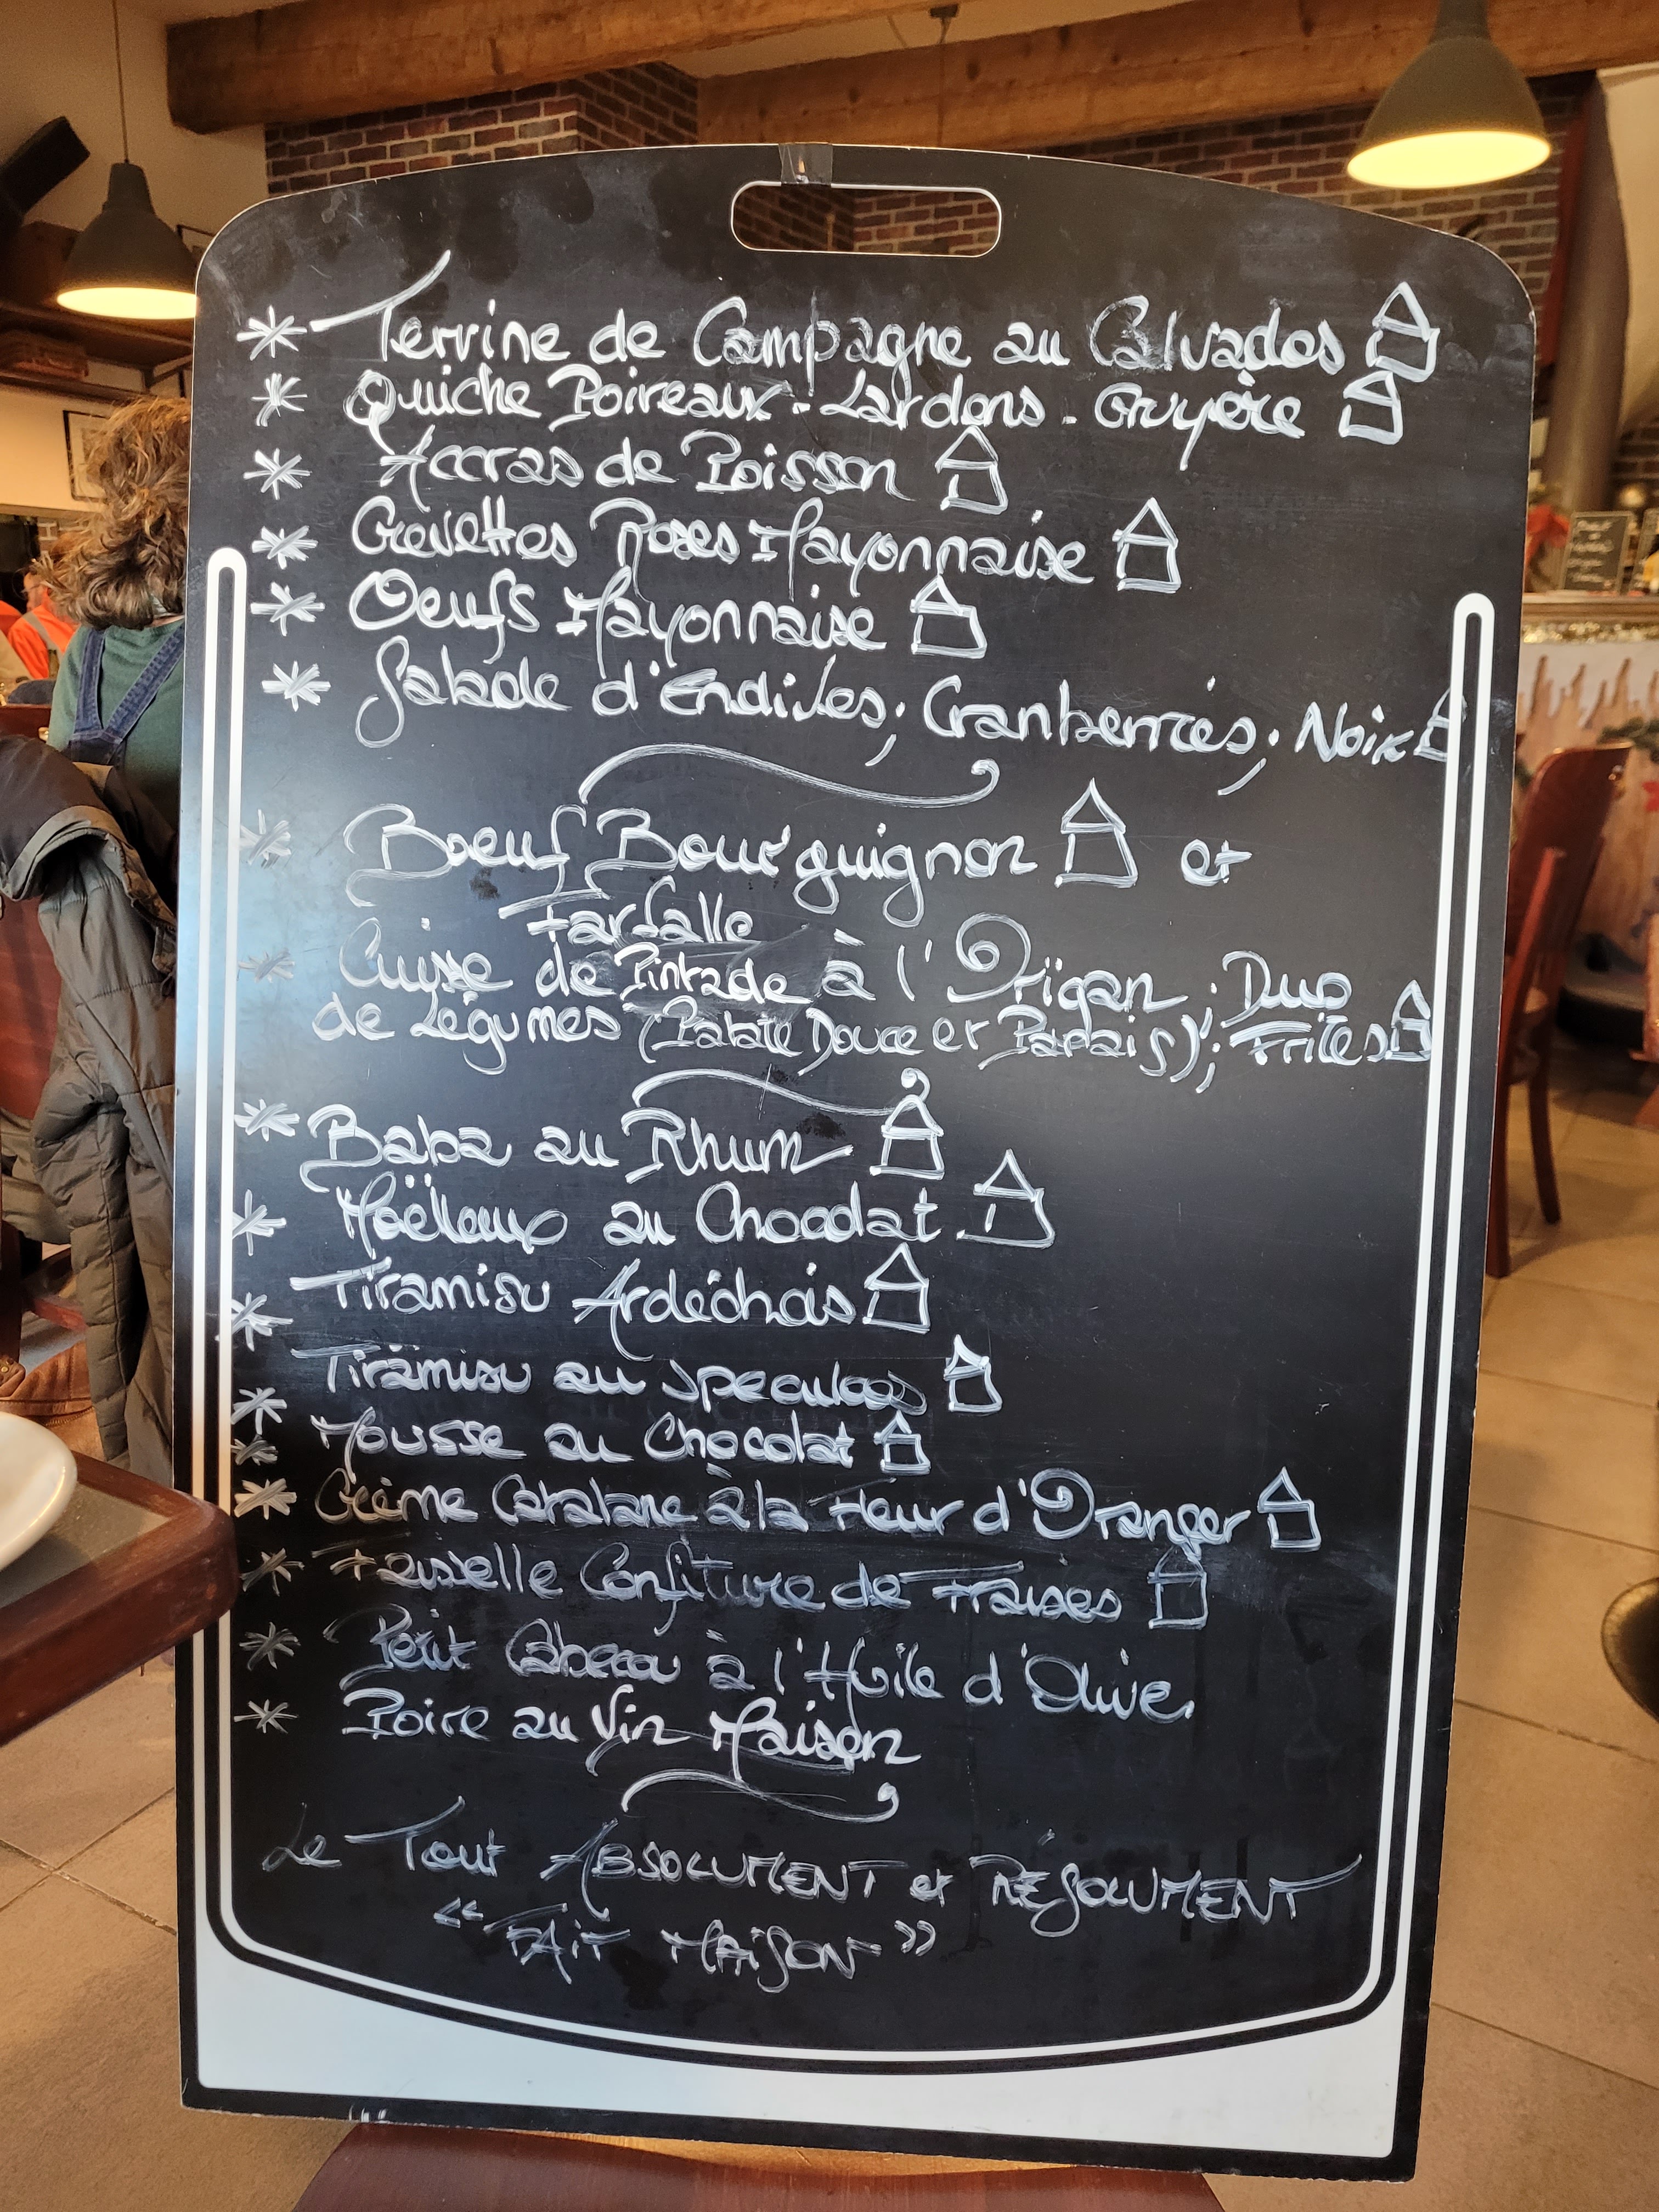 * Terrine de Campagne au Calvados
* Quiche Poireaux - Lardons - Gruyère
* Accras de Poisson
* Crevettes Roses Mayonnaise
* Oeufs Mayonnaise
* Salade d'Endives; Cranberries; Noix
* Boeuf Bourguignon et
Farfalle
* Cuisse de Pintade à l'Origan; Duo
de Légumes (Patate Douce et Panais); Frites
* Baba au Rhum
* Moëlleux au Chocolat
* Tiramisu Ardéchois
* Tiramisu au Speculoos
* Mousse au Chocolat
* Crème Catalane à la Fleur d'Oranger
* Faisselle Confiture de Fraises
* Petit à l'Huile d'Olive
* Poire au Vin Maison
Le Tout ABSOLUMENT et RÉSOLUMENT
"FAIT MAISON"